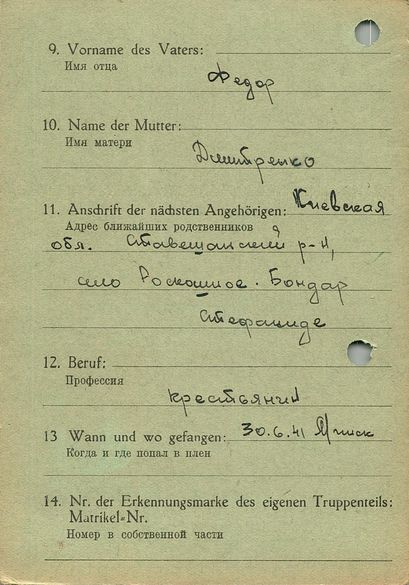 9. Vorname des Vaters:
Имя отца
Федор
10. Name der Mutter:
Имя матери
Дмитренко
11. Anschrift der nächsten Angehörigen: Киевская
Адрес ближайших родственников
обл. Ставещанский р-н,
село Роскошное. Бондар
Стефаниде
12. Beruf:
Профессия
крестьянин
13 Wann und wo gefangen: 30.6.41 Минск
Когда и где попал в плен
14. Nr. der Erkennungsmarke des eigenen Truppenteils:
Matrikel-Nr.
Номер в собственной части